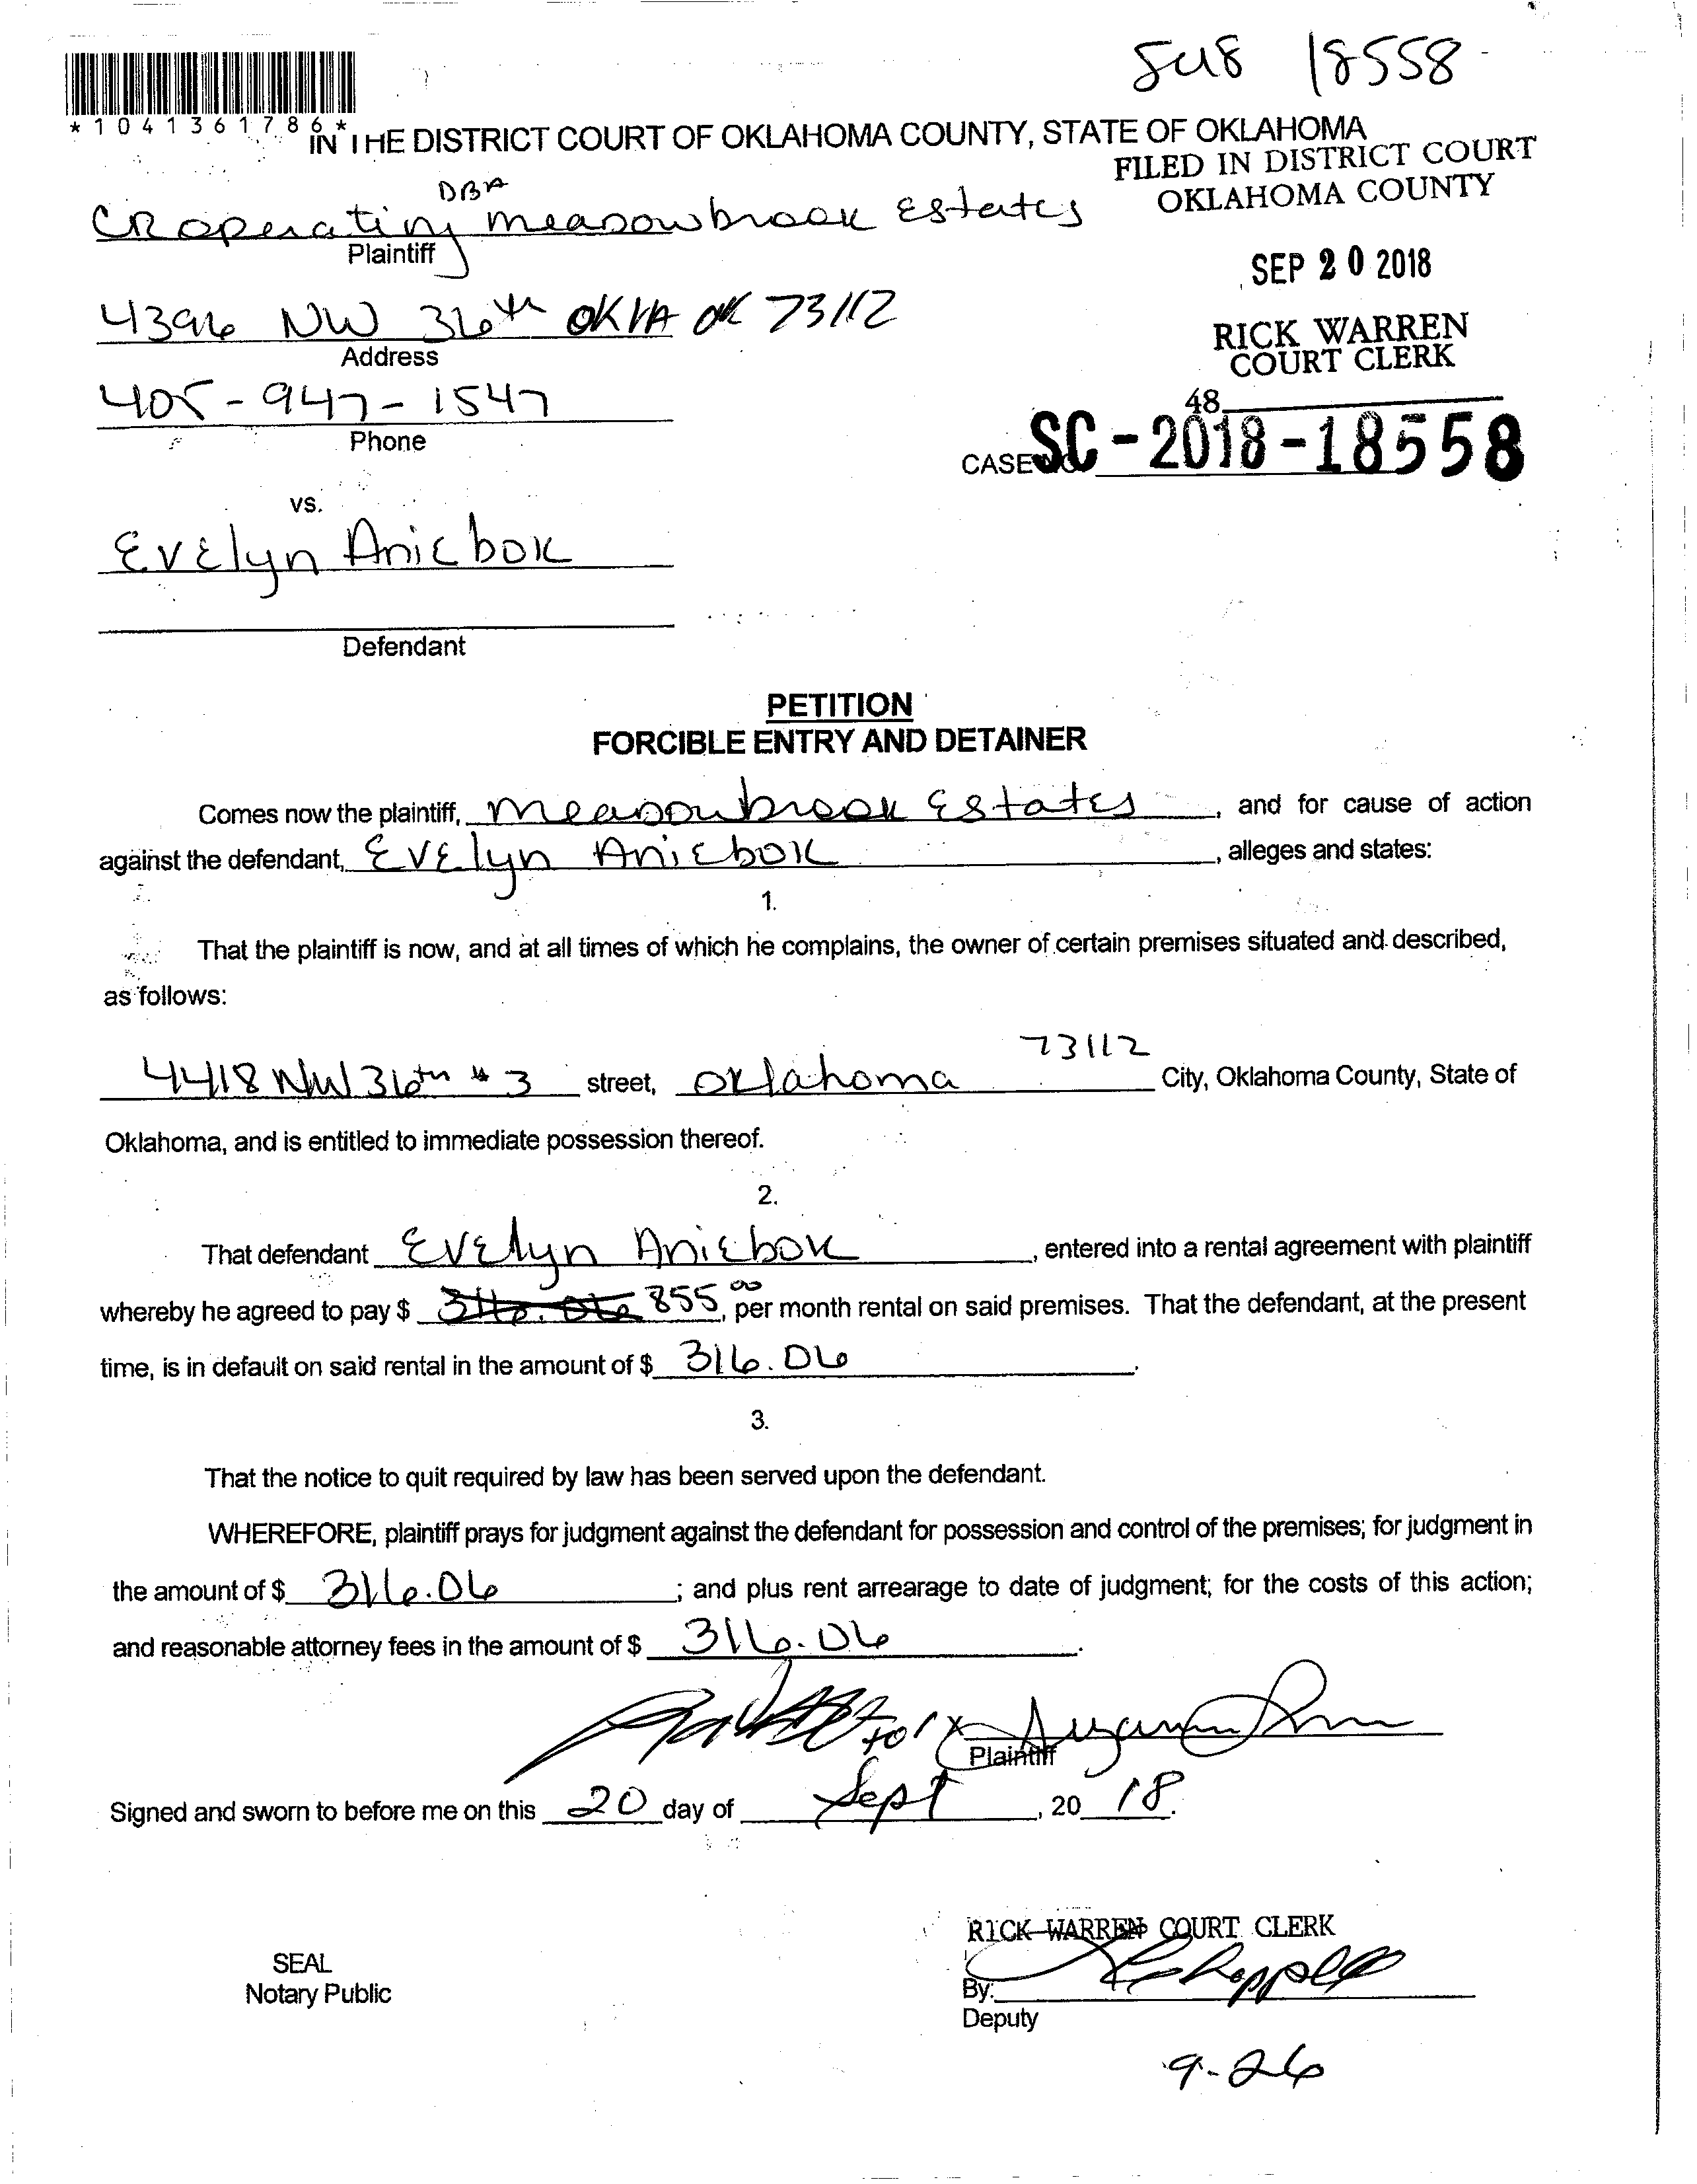 SC18 18558
*1041361786*
IN THE DISTRICT COURT OF OKLAHOMA COUNTY, STATE OF OKLAHOMA
FILED IN DISTRICT COURT
OKLAHOMA COUNTY
DBA
CR operating Meadowbrook Estates
Plaintiff
SEP 20 2018
4396 NW 36th OK OK 73112
Address
RICK WARREN
COURT CLERK
405-947-1547
Phone
48
CASE NO. SC-2018-18558
vs.
Evelyn Aniebok
Defendant
PETITION
FORCIBLE ENTRY AND DETAINER
Comes now the plaintiff, Meadowbrook Estates, and for cause of action
against the defendant, Evelyn Aniebok, alleges and states:
1.
That the plaintiff is now, and at all times of which he complains, the owner of certain premises situated and described,
as follows:
73112
4418 NW 36th #3 street, Oklahoma City, Oklahoma County, State of
Oklahoma, and is entitled to immediate possession thereof.
2.
That defendant Evelyn Aniebok, entered into a rental agreement with plaintiff
whereby he agreed to pay $ 316.06 855.00, per month rental on said premises. That the defendant, at the present
time, is in default on said rental in the amount of $ 316.06.
3.
That the notice to quit required by law has been served upon the defendant.
WHEREFORE, plaintiff prays for judgment against the defendant for possession and control of the premises; for judgment in
the amount of $ 316.06; and plus rent arrearage to date of judgment; for the costs of this action;
and reasonable attorney fees in the amount of $ 316.06.
x
Plaintiff
Signed and sworn to before me on this 20 day of Sept, 20 18.
RICK WARREN COURT CLERK
SEAL
Notary Public
By:
Deputy
9-26